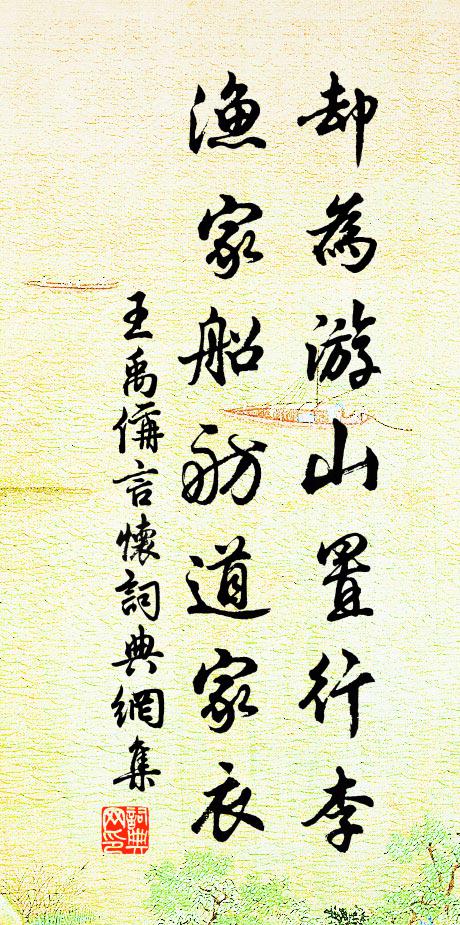 却為游山置行李
漁家船舫道家衣
王禹偁言懷詞典網集
詞典网印